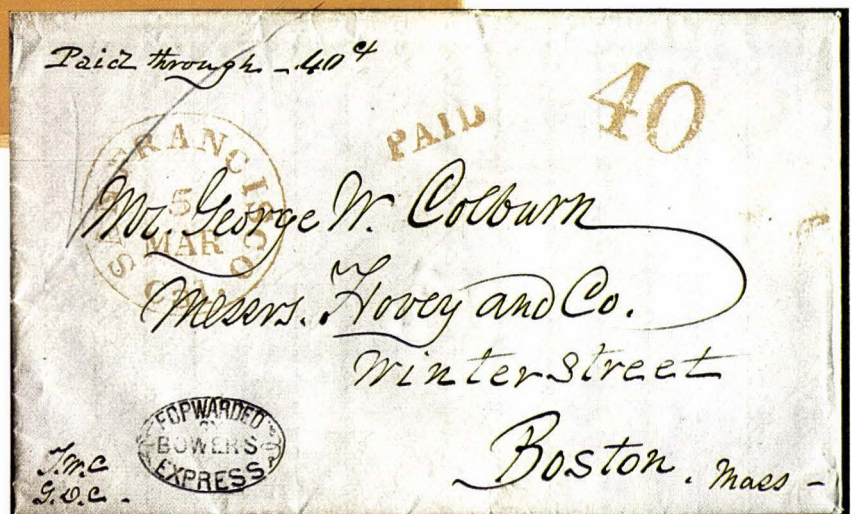 Paid through - 40 ct
PAID
40
SAN FRANCISCO
5
MAR
CAL.
Mr. George W. Colburn
Messrs. Hovey and Co.
Winter Street
Boston. Mass -
FORWARDED
BY
BOWERS
EXPRESS